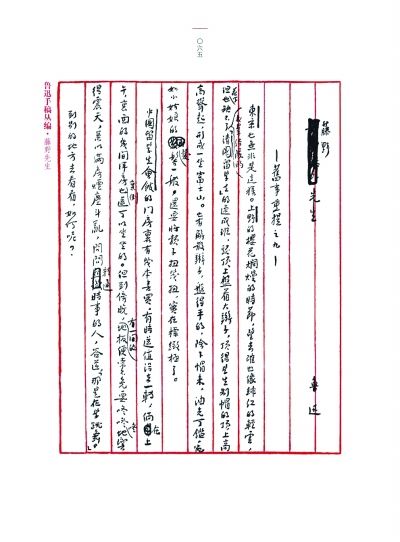 〇六五
魯迅手稿丛编·藤野先生
藤野先生
—舊事重提之九—
魯迅
東京也無非是這樣。上野的櫻花爛熳的時節，望去確也像緋紅的輕雲，
但也缺不了「清國留學生」的速成班，頭頂上盤着大辮子，頂得學生制帽的頂上高
高聳起，形成一座富士山。也有解散辮子，盤得平的，除下帽來，油光可鑑，宛
如小姑娘的髻一般，還要將脖子扭幾扭，實在標緻極了。
中國留學生會館的門房裏有幾本書買，有時還值得去一轉，倘在上
午，裏面的幾間洋房倒也還可以坐坐的。但到傍晚，有一間的地板便常不免要咚咚地響
得震天，兼以滿房煙塵斗亂，問問精通時事的人，答道，「那是在學跳舞。」
到別的地方去看看，如何呢？